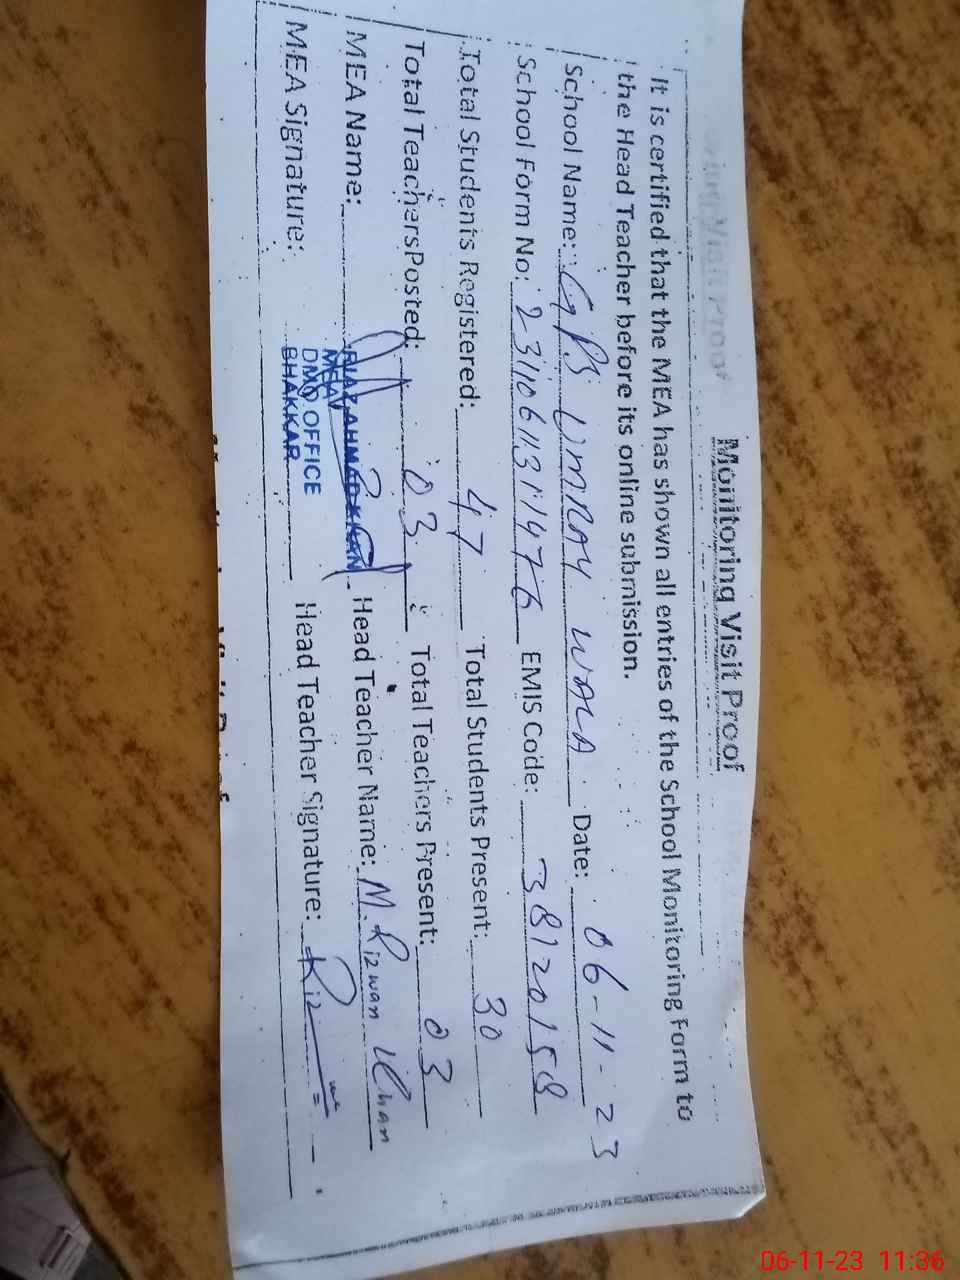 Monitoring Visit Proof
It is certified that the MEA has shown all entries of the School Monitoring Form to
the Head Teacher before its online submission.
School Name: GPS UMRAY WALA Date: 06-11-23
School Form No: EMIS Code: 38120158
Total Students Registered: 47 Total Students Present: 30
Total Teachers Posted: 03 Total Teachers Present: 03
MEA Name: RIAZ AHMAD KHAN Head Teacher Name: M. Rizwan Khan
MEA
DMO OFFICE
BHAKKAR
MEA Signature: Head Teacher Signature: Riz
06-11-23 11:36